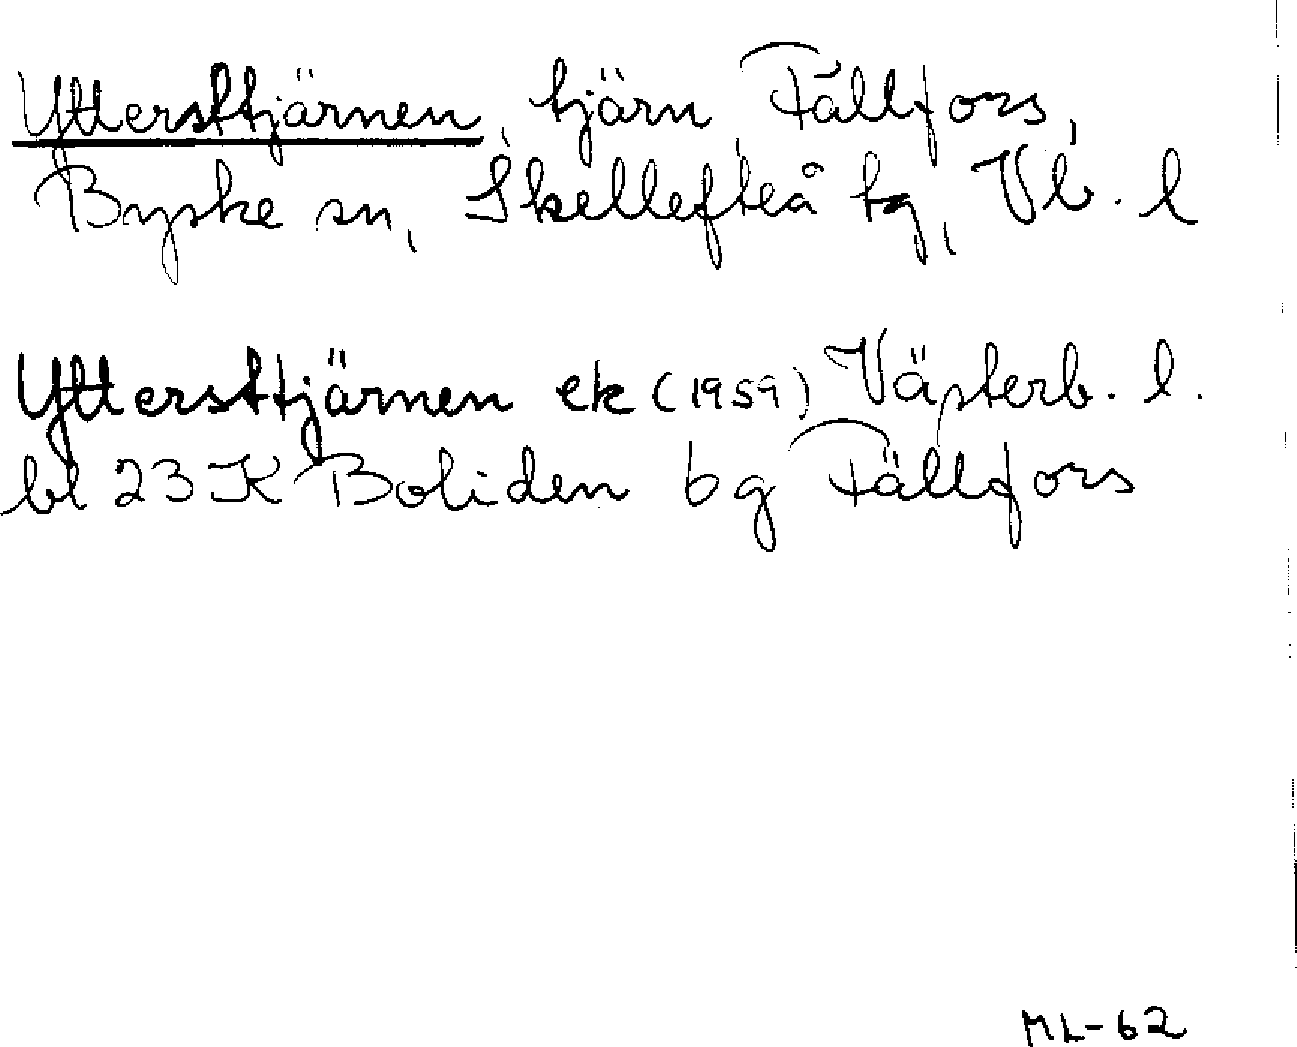 Yttersttjärnen, tjärn, Fällfors,
Byske sn, Skellefteå tg, Vb. l
Yttersttjärnen ek (1959) Västerb. l.
bl 23 K Boliden 6g Fällfors
ML-62